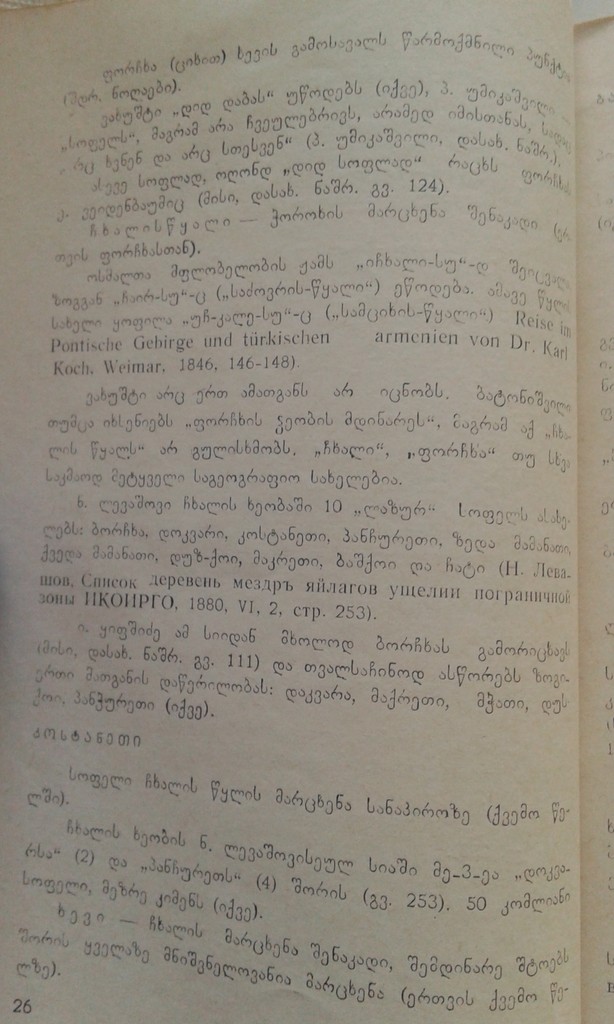 ფორჩხა (ციხით) ხევის გამოსავალს წარმოქმნილი პუნქტია
(შდრ. ნოღაები).
ვახუშტი „დიდ დაბას“ უწოდებს (იქვე), პ. უმიკაშვილი —
„სოფელს“, მაგრამ არა ჩვეულებრივს, არამედ იმისთანას, სადაც
არც ხნენ და არც სთესვენ“ (პ. უმიკაშვილი, დასახ. ნაშრ.).
ასევე სოფლად, ოღონდ „დიდ სოფლად“ რაცხს ფორჩხას
ე. ვეიდენბაუმიც (მისი, დასახ. ნაშრ. გვ. 124).
ჩხალისწყალი — ჭოროხის მარცხენა შენაკადი (ერ-
თვის ფორჩხასთან).
ოსმალთა მფლობელობის ჟამს „იჩხალი-სუ“-დ შეიცვალა
ზოგგან „ჩაირ-სუ“-ც („საძოვრის-წყალი“) ეწოდება. ამავე წყლის
სახელი ყოფილა „უჩ-კალე-სუ“-ც („სამციხის-წყალი“) Reise im
Pontische Gebirge und türkischen armenien von Dr. Karl
Koch, Weimar, 1846, 146-148).
ვახუშტი არც ერთ ამათგანს არ იცნობს. ბატონიშვილი
თუმცა იხსენიებს „ფორჩხის ჴეობის მდინარეს“, მაგრამ აქ „ჩხა-
ლის წყალს“ არ გულისხმობს. „ჩხალი“, „ფორჩხა“ თუ სხვა
საკმაოდ მეტყველი საგეოგრაფიო სახელებია.
ნ. ლევაშოვი ჩხალის ხეობაში 10 „ლაზურ“ სოფელს ასახე-
ლებს: ბორჩხა, დოკვარი, კოსტანეთი, პანჩურეთი, ზედა მამანათი,
ქვედა მამანათი, დუზ-ქოი, მაკრეთი, ბაშქოი და ჩატი (Н. Лева-
шов, Список деревень мездръ яйлагов ущелии пограничной
зоны ИКОИРГО, 1880, VI, 2, стр. 253).
ი. ყიფშიძე ამ სიიდან მხოლოდ ბორჩხას გამორიცხავს
(მისი, დასახ. ნაშრ. გვ. 111) და თვალსაჩინოდ ასწორებს ზოგი-
ერთი მათგანის დაწერილობას: დაკვარა, მაქრეთი, მჭათი, დუს-
ქოი, პანჭურეთი (იქვე).
კოსტანეთი
სოფელი ჩხალის წყლის მარცხენა სანაპიროზე (ქვემო წე-
ლში).
ჩხალის ხეობის ნ. ლევაშოვისეულ სიაში მე-3-ეა „დოკვა-
რსა“ (2) და „პანჩურეთს“ (4) შორის (გვ. 253). 50 კომლიანი
სოფელი, მეზრე კიმენს (იქვე).
ხევი — ჩხალის მარცხენა შენაკადი, შემდინარე შტოებს
შორის ყველაზე მნიშვნელოვანია მარცხენა (ერთვის ქვემო წე-
ლზე).
26